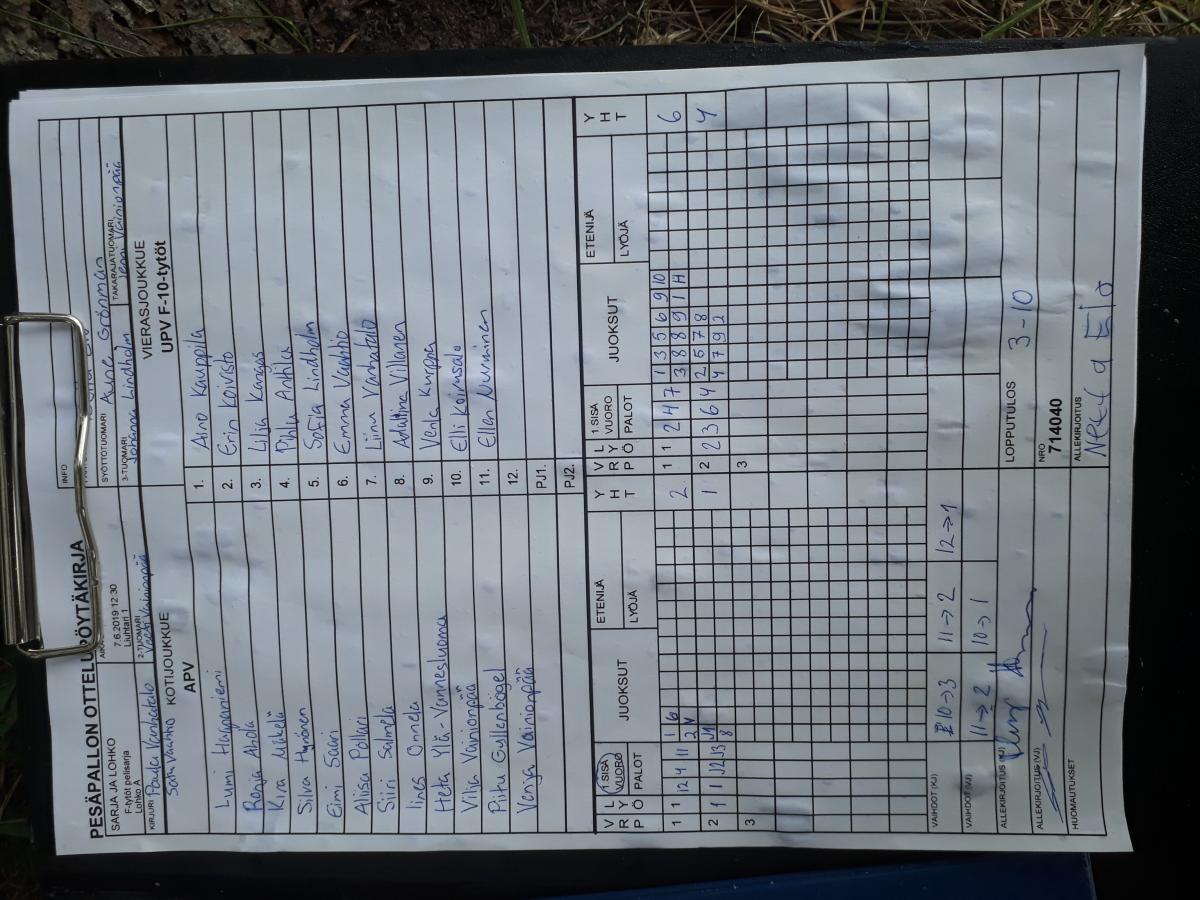 PESÄPALLON OTTELUPÖYTÄKIRJA
INFO
SARJA JA LOHKO
F-tytöt pelisarja
Lohko A
7.6.2019 12:30
Liuhtari 1
SYÖTTÖTUOMARI Aune Grönman
TAKARAJATUOMARI Jenni Vainionpää
KIRJURI Paula Vanhatalo
2-TUOMARI Vainionpää
3-TUOMARI Johanna Lindholm
Satu Vaahtio
KOTIJOUKKUE
APV
VIERASJOUKKUE
UPV F-10-tytöt
Lumi Haapaniemi 1. Aino Kauppila
Ronja Ahola 2. Erin Koivisto
Kira Mäkelä 3. Lilja Kangas
Silva Hyvönen 4. Pihla Anttila
Eimi Saari 5. Sofia Lindholm
Aliisa Pollari 6. Emma Vaahtio
Siiri Salmela 7. Liinu Vanhatalo
Iines Onnela 8. Adaliina Villanen
Heta Ylä-Vannesluoma 9. Venla Kurppa
Vilja Vainionpää 10. Elli Koivusalo
Pihtu Gyllenbögel 11. Ellen Nurminen
Venja Vainionpää 12.
PJ1.
PJ2.
V R P L Y Ö 1.SISÄ VUORO PALOT JUOKSUT ETENIJÄ LYÖJÄ Y H T V R P L Y Ö 1.SISÄ VUORO PALOT JUOKSUT ETENIJÄ LYÖJÄ Y H T
1 1 12 4 11 1 6 2 1 1 2 4 7 1 3 5 6 9 10 6
3 8 8 9 1 H
2 1 1 J2 J3 J1 1 2 2 3 6 4 2 5 7 8 4
8 4 7 9 2
3 3
VAIHDOT (KJ) 10→3 11→2 12→1
VAIHDOT (VJ) 11→2 10→1
ALLEKIRJOITUS (KJ)
LOPPUTULOS 3-10
ALLEKIRJOITUS (VJ)
NRO
714040
HUOMAUTUKSET
ALLEKIRJOITUS